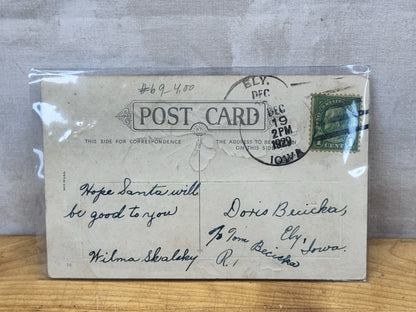 #69 4.00
ELY,
DEC
DEC
19
2 PM
1929
IOWA
1 CENT
POST CARD
THIS SIDE FOR CORRESPONDENCE
THE ADDRESS TO BE
ON THIS SIDE
Hope Santa will
be good to you
Wilma Skalsky
Doris Becicka,
℅ Tom Ely,
Becicka Iowa.
R. 1